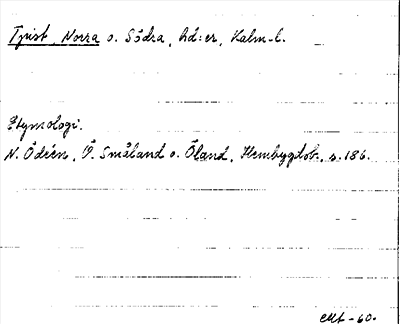 Tjust, Norra o. Södra, hd:er, Kalm. l.
Etymologi.
N. Ödéen, Ö. Småland o. Öland, Hembygdsb., s. 186.
-60.